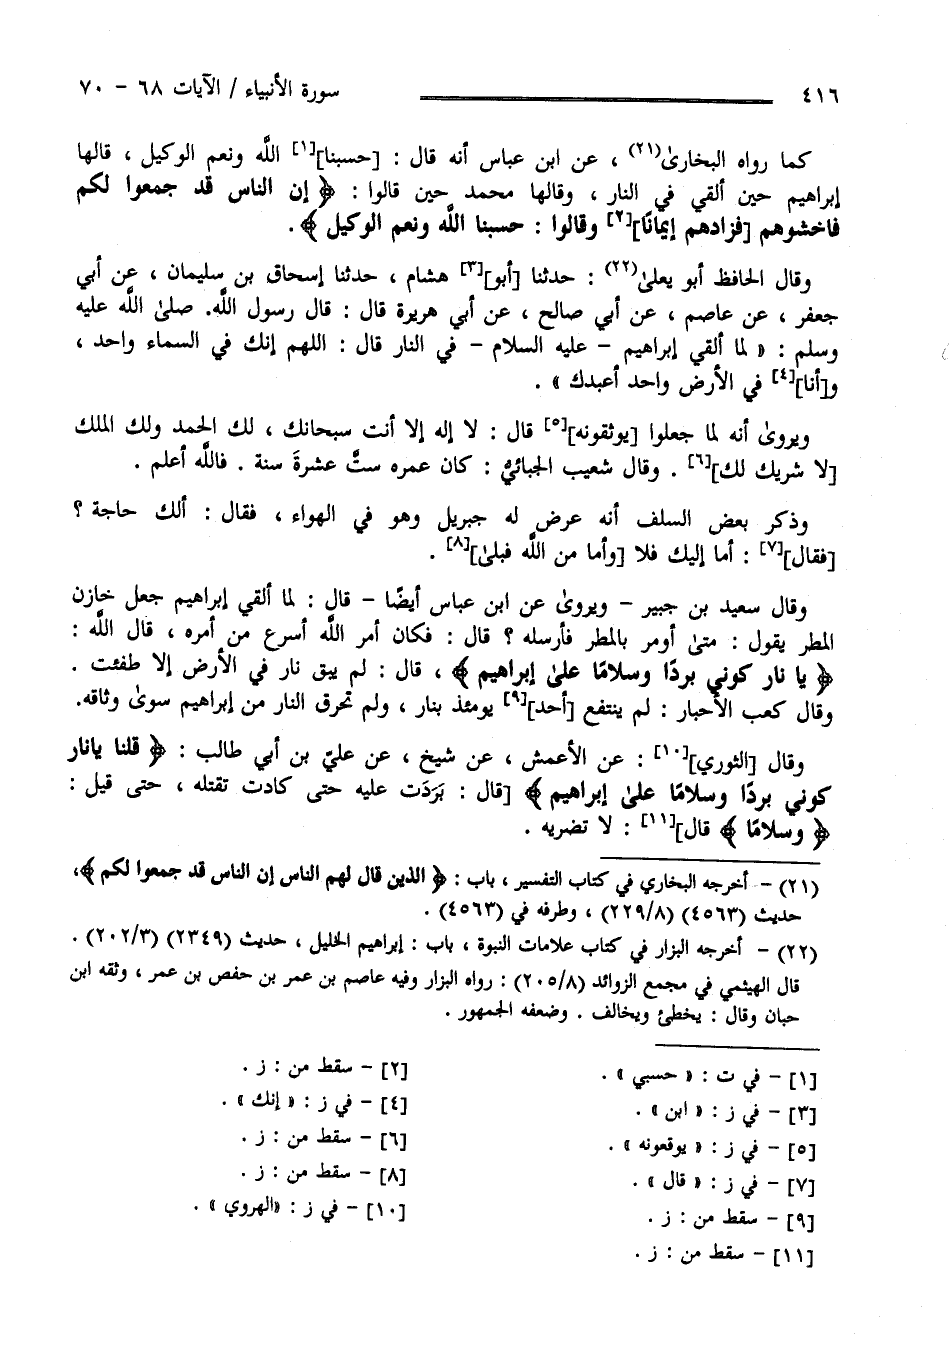 ٤١٦ سورة الأنبياء / الآيات ٦٨ - ٧٠
كما رواه البخارى(٢١) ، عن ابن عباس أنه قال : [حسبنا][١] اللَّه ونعم الوكيل ، قالها
إبراهيم حين ألقي في النار ، وقالها محمد حين قالوا : ﴿ إن الناس قد جمعوا لكم
فاخشوهم [فزادهم إيمانًا][٢] وقالوا : حسبنا اللَّه ونعم الوكيل ﴾.
وقال الحافظ أبو يعلىٰ(٢٢) : حدثنا [أبو][٣] هشام ، حدثنا إسحاق بن سليمان ، عن أبي
جعفر ، عن عاصم ، عن أبي صالح ، عن أبي هريرة قال : قال رسول اللَّه. صلىٰ اللَّه عليه
وسلم : « لما ألقي إبراهيم - عليه السلام - في النار قال : اللهم إنك في السماء واحد ،
و[أنا][٤] في الأرض واحد أعبدك » .
ويروىٰ أنه لما جعلوا [يوثقونه][٥] قال : لا إله إلا أنت سبحانك ، لك الحمد ولك الملك
[لا شريك لك][٦] . وقال شعيب الجبائيُّ : كان عمره ستَّ عشرةَ سنة . فاللَّه أعلم .
وذكر بعض السلف أنه عرض له جبريل وهو في الهواء ، فقال : ألك حاجة ؟
[فقال][٧] : أما إليك فلا [وأما من اللَّه فبلىٰ][٨] .
وقال سعيد بن جبير - ويروىٰ عن ابن عباس أيضًا - قال : لما ألقي إبراهيم جعل خازن
المطر يقول : متىٰ أومر بالمطر فأرسله ؟ قال : فكان أمر اللَّه أسرع من أمره ، قال اللَّه :
﴿ يا نار كوني بردًا وسلامًا علىٰ إبراهيم ﴾ ، قال : لم يبق نار في الأرض إلا طفئت .
وقال كعب الأحبار : لم ينتفع [أحد][٩] يومئذ بنار ، ولم تحرق النار من إبراهيم سوىٰ وثاقه.
وقال [الثوري][١٠] : عن الأعمش ، عن شيخ ، عن عليّ بن أبي طالب : ﴿ قلنا يانار
كوني بردًا وسلامًا علىٰ إبراهيم ﴾ [قال : بَرَدَت عليه حتى كادت تقتله ، حتى قيل :
﴿ وسلامًا ﴾ قال][١١] : لا تضريه .
(٢١) - أخرجه البخاري في كتاب التفسير ، باب : ﴿ الذين قال لهم الناس إن الناس قد جمعوا لكم ﴾،
حديث (٤٥٦٣) (٢٢٩/٨) ، وطرفه في (٤٥٦٣) .
(٢٢) - أخرجه البزار في كتاب علامات النبوة ، باب : إبراهيم الخليل ، حديث (٢٣٤٩) (٢٠٢/٣) .
قال الهيثمي في مجمع الزوائد (٢٠٥/٨) : رواه البزار وفيه عاصم بن عمر بن حفص بن عمر ، وثقه ابن
حبان وقال : يخطئ ويخالف . وضعفه الجمهور .
[١] - في ت : « حسبي » . [٢] - سقط من : ز .
[٣] - في ز : « ابن » . [٤] - في ز : « إنك » .
[٥] - في ز : « يوقعونه » . [٦] - سقط من : ز .
[٧] - في ز : « قال » . [٨] - سقط من : ز .
[٩] - سقط من : ز . [١٠] - في ز : «الهروي » .
[١١] - سقط من : ز .